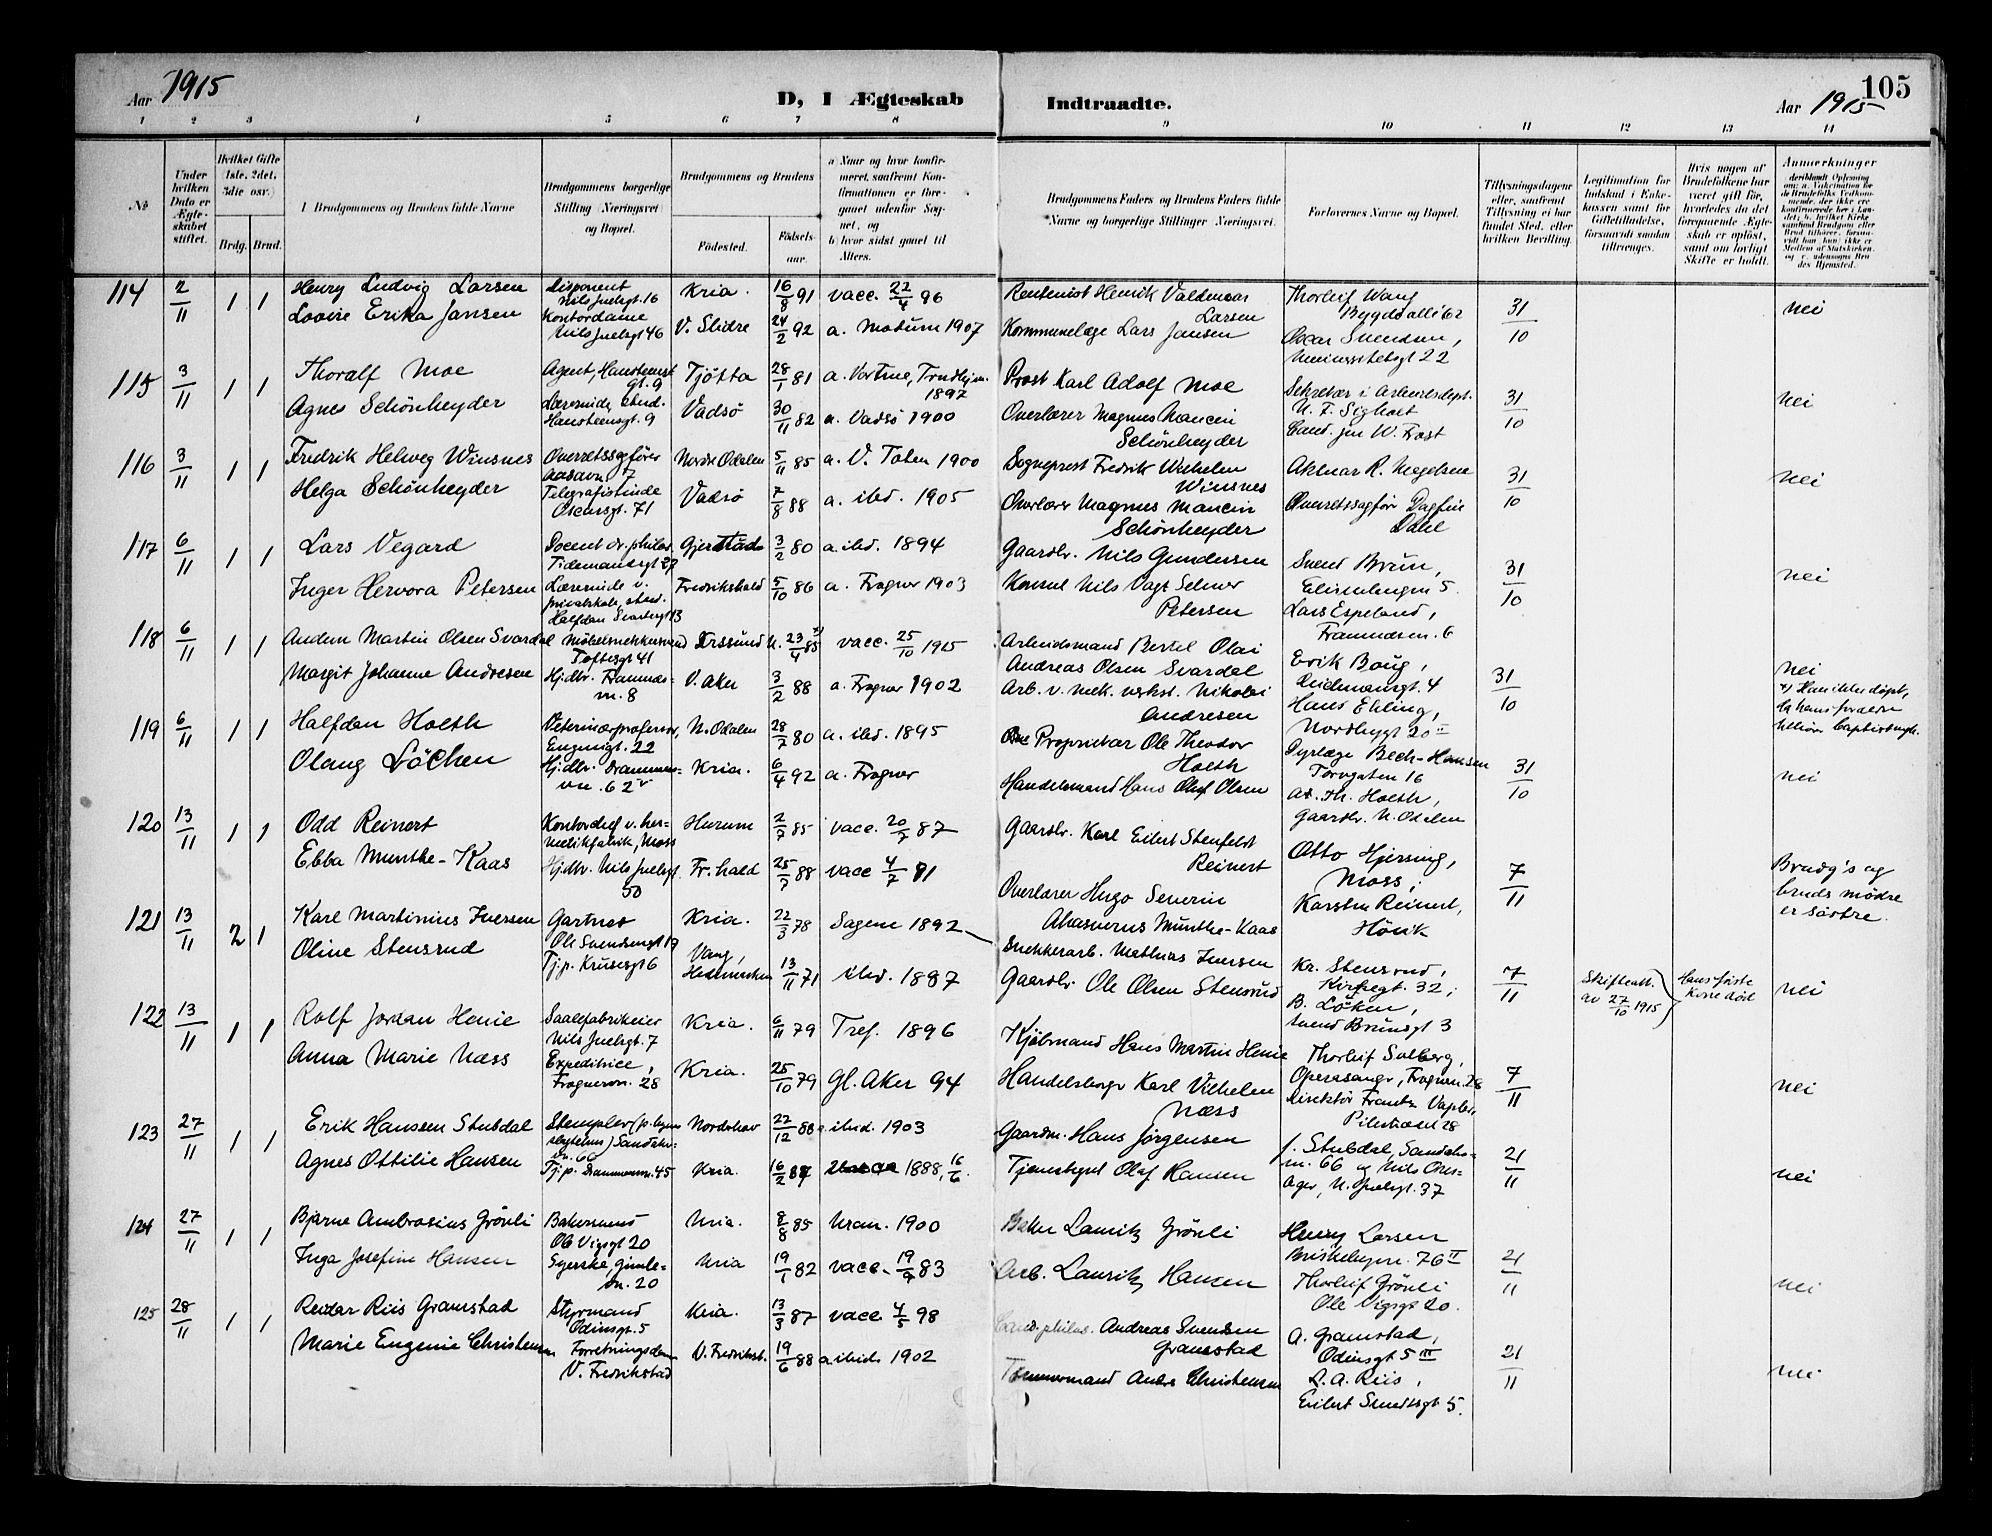 Aar 1915
D, I Ægteskab Indtraadte.
Aar 1915
105
1 2 3 4 5 6 7 8 9 10 11 12 13 14
№
Under hvilken Dato er Ægteskabet stiftet.
Hvilket Gifte (1ste, 2det, 3die osv.)
Brdg. Brud.
I Brudgommens og Brudens fulde Navne
Brudgommens borgerlige Stilling (Næringsvei) og Bopæl.
Brudgommens og Brudens
Fødested. Fødselsaar.
a) Naar og hvor konfirmeret, saafremt Konfirmationen er foregaaet udenfor Sognet, og
b) hvor sidst gaaet til Alters.
Brudgommens Faders og Brudens Faders fulde Navne og borgerlige Stillinger Næringsvei.
Forlovernes Navne og Bopæl.
Tillysningsdagene eller, saafremt Tillysning ei har fundet Sted, efter hvilken Bevilling.
Legitimation for Indskud i Enkekassen samt for Giftetilladelse, forsaavidt saadan tiltrænges.
Hvis nogen af Brudefolkene har været gift før, hvorledes da det foregaaende Ægteskab er opløst, samt om lovligt Skifte er holdt.
Anmærkninger
114 2/11 1 1 Henry Ludvig Larsen Disponent Nils Juelsgt. 16 Kria. 16/8 91 vacc. 22/4 96 Rentenist Henrik Valdemar Larsen Thorleif Wang Bygdø allé 62 31/10 nei
Lovise Erika Jansen Kontordame Nils Juelsgt 46 V. Slidre 24/2 92 a. Modum 1907 Kommunelæge Lars Jansen Oscar Svendsen, Universitetsgt 22
115 3/11 1 1 Thoralf Moe Agent, Hansteensgt. 9 Tjøtta 28/1 81 a. Vor Frue, Trndhjm. 1897 Prost Karl Adolf Moe Sekretær i Arbeidsdept. 31/10 nei
Agnes Schönheyder Lærerinde, Hansteensgt. 9 Vadsö 30/11 82 a. Vadsö 1900 Overlærer Magnus Mancin Schönheyder Cand. jur W. Frost
116 3/11 1 1 Fredrik Helweg Winsnes Overretssagfører 7 Nordre Odalen 5/11 85 a. V. Toten 1900 Sogneprest Fredrik Wilhelm Winsnes Aktuar R. Megelsen 31/10 nei
Helga Schönheyder Telegrafistinde Oscarsgt. 71 Vadsö 7/8 88 a. ibd. 1905 Overlærer Magnus Mancin Schönheyder Overretssagfører Dagfin Dahl
117 6/11 1 1 Lars Vegard Docent dr. philos. Tidemansgt 27 Gjerstad 3/2 80 a. ibd. 1894 Gaardbr. Nils Gundersen Svend Brun, 5. 31/10 nei
Inger Hervora Petersen Lærerinde v. privatskole, Halfdan Svartesgt 13 Fredrikshald 5/10 86 a. Frogner 1903 Konsul Nils Vagt Selmer Petersen Lars Espeland, Framnesvn. 6
118 6/11 1 1 Andrun Martin Olsen Svardal Møbelsnekkersvend Toftesgt 41 23/4 85 vacc. 25/10 1915 Arbeidsmand Bertel Olai Andreas Olsen Svardal Erik Boug, Reichmannsgt. 4 31/10 nei
Margit Johanne Andresen Hj. dtr. Framnesvn. 8 V. Aker 3/2 88 a. Frogner 1902 Arb. v. mek. verkst. Nikolai Andresen Hans Ehling, Nordbygt 20 II x) Han ikke døpt, da hans forældre tilhører baptistmgh.
119 6/11 1 1 Halfdan Holth Veterinærprofessor, Eugeniegt. 22 N. Odalen 28/7 80 a. ibd. 1895 Proprietær Ole Theodor Holth Dyrlæge Bech-Hansen Torvgaten 16 31/10 nei
Olaug Löchen Hj. dtr. Drammensvn. 62 Kria. 6/4 92 a. Frogner Handelsmand Hans Oluf Olsen Ax. Th. Holth, Gaardbr. N. Odalen
120 13/11 1 1 Odd Reinert Kontorchef v. hermetikfabrik, Moss Hurum 2/7 85 vacc. 20/7 87 Gaardbr. Karl Eilert Stenfeldt Reinert Otto Hjersing, Moss; 7/11 Brudg's og bruds mødre er søstre.
Ebba Munthe-Kaas Hj. dtr. Nils Juelsgt 50 Fr.hald 25/7 88 vacc 4/7 91 Overlærer Hugo Severin Ahasverus Munthe-Kaas Karsten Reinert, Hövik
121 13/11 2 1 Karl Martinius Iversen Gartner Ole Svendsensgt 19 Kria. 22/3 78 Sagene 1892 Snekkerarb. Mathias Iversen Kr. Stensrud, Kirkegt. 32; 7/11 Skifteatt. av 27/10 1915 Hans første kone død nei
Oline Stensrud Tj.p. Krusesgt 6 Vang, Hedemarken 13/11 71 ibd. 1887 Gaardbr. Ole Olsen Stensrud B. Löken, Svend Brunsgt 3
122 13/11 1 1 Rolf Jordan Henie Saalefabrikeier Nils Juelsgt. 7 Kria. 6/11 79 Tref. 1896 Kjøbmand Hans Martin Henie Thorleif Solberg, Operasanger, Frognerv. 28 7/11 nei
Anna Marie Næss Expeditrice, Frognervn. 28 Kria. 25/10 79 Gl. Aker 94 Handelsborger Karl Vilhelm Næss Direktör Frantz Vapler, Pilestrædet 28
123 27/11 1 1 Erik Hanssen Stubdal Stempler Nordrehov 22/12 88 a. ibid. 1903 Gaardm. Hans Jørgensen J. Stubdal, 66 21/11 nei
Agnes Ottilie Hansen Tj.p. Drammensvn. 45 Kria. 16/2 87 1888, 16/6 Tjenestegut Olaf Hansen N. Juelsgt. 37
124 27/11 1 1 Bjarne Ambrosius Grönli Bakersvend Ole Vigsgt 20 Kria. 8/8 85 Uran. 1900 Baker Lauritz Grönli Henry Larsen Briskebyvn. 76 II 21/11 nei
Inga Josefine Hansen Syerske, Gimlevn. 20 Kria 19/1 82 vacc. 19/9 83 Arb. Lauritz Hansen Thorleif Grönli Ole Vigsgt 20.
125 28/11 1 1 Reidar Riis Gramstad Styrmand Odinsgt. 5 Kria. 13/3 87 vacc. 4/5 98 Cand. philos. Andreas Svendsen Gramstad A. Gramstad, Odinsgt 5 III 21/11 nei
Marie Eugenie Christensen Forretningsdame V. Fredrikstad V. Fredrikst. 19/6 88 a. ibid. 1902 Tømmermand Andr. Christensen D. A. Riis, Eilert Sundtsgt 5.